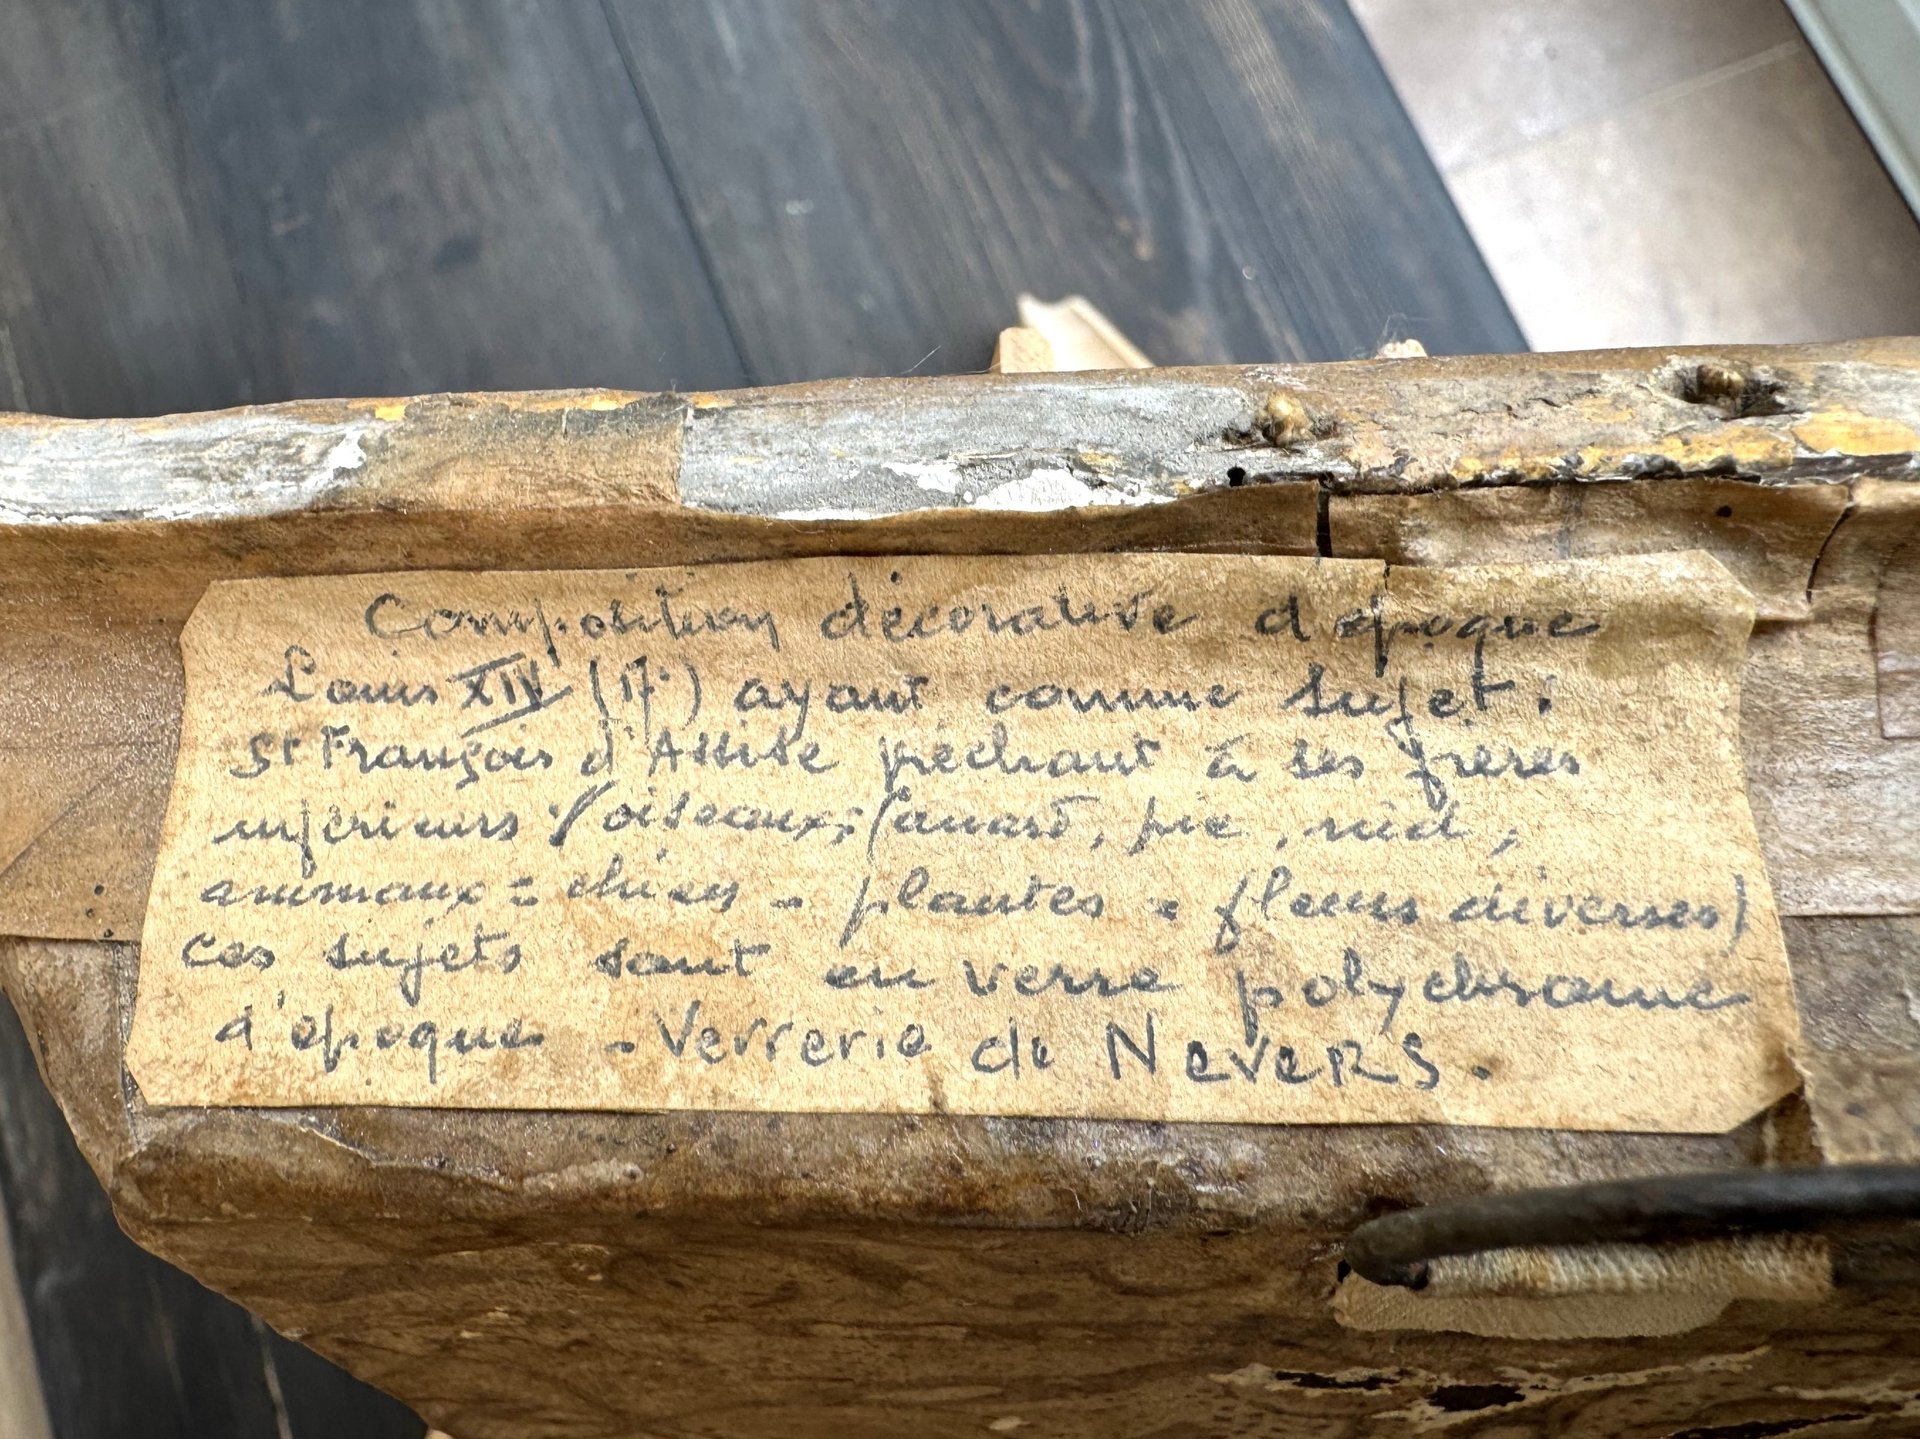 Composition décorative d'époque
Louis XIV (17e) ayant comme sujet :
St François d'Assise pêchant à ses frères
inférieurs : (oiseaux ; canard, pie, nid,
animaux = chien - plantes - fleurs diverses)
ces sujets sont en verre polychrome
d'époque - Verrerie de NeveRS.